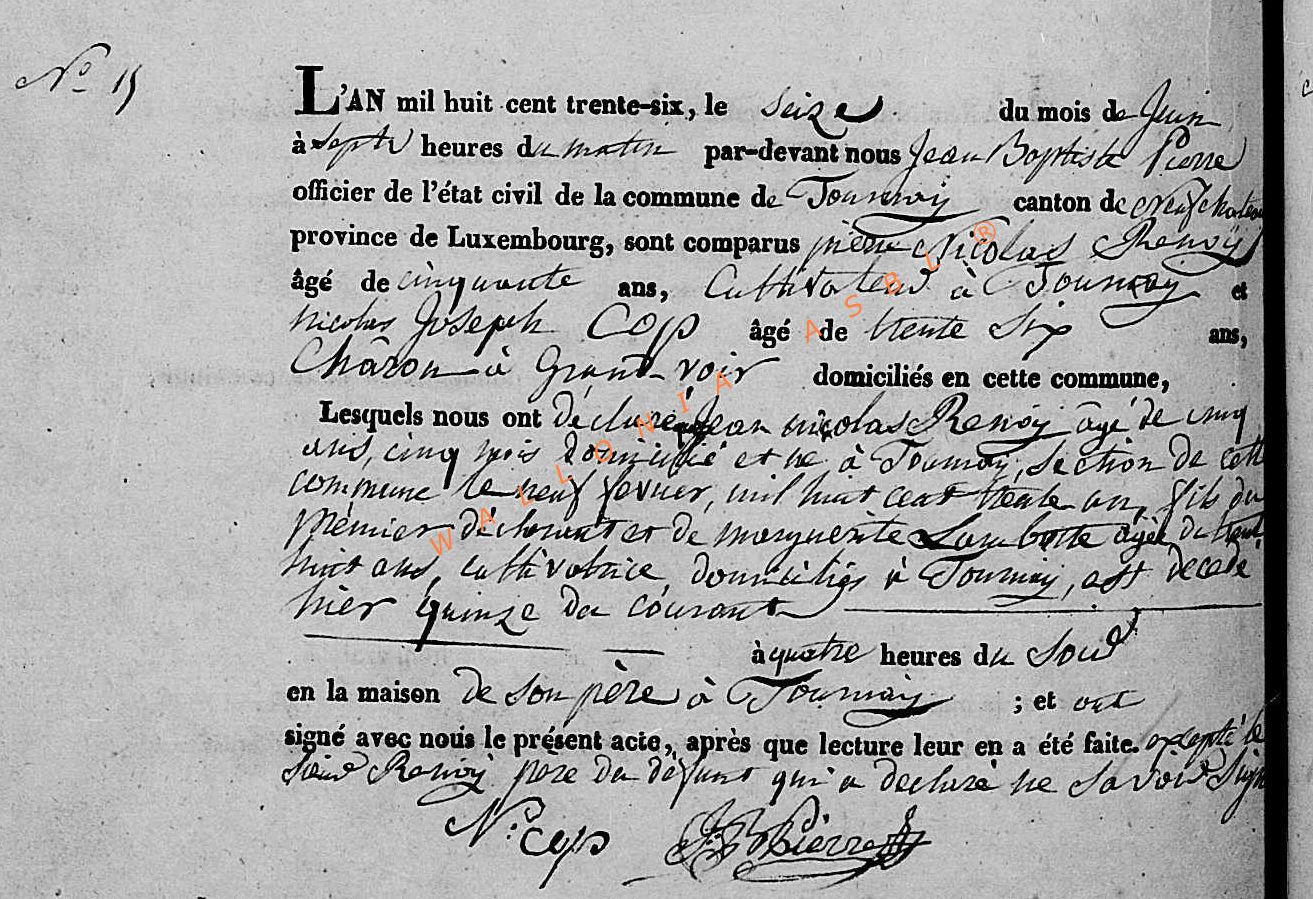 No 15
L'AN mil huit cent trente-six, le seize du mois de Juin
à sept heures du matin par-devant nous Jean Baptiste Pierre
officier de l'état civil de la commune de Tournay canton de neufchateau
province de Luxembourg, sont comparus pierre Nicolas Renoy
âgé de cinquante ans, Cultivateur à Tournay et
nicolas Joseph Cop âgé de trente Six ans,
Châron à Grand-voir domiciliés en cette commune,
Lesquels nous ont déclaré Jean nicolas Renoy âgé de cinq
ans, cinq mois domicilié et né à Tournay, section de cette
commune le neuf fevrier, mil huit cent trente un, fils du
premier déclarant et de marguerite Lambotte agée de trente
huit ans, cultivatrice, domiciliés à Tournay, est décédé
hier quinze du courant
à quatre heures du soir
en la maison de son père à Tournay ; et ont
signé avec nous le présent acte, après que lecture leur en a été faite. excepté le
sieur Renoy pere du défunt qui a déclaré ne savoir sign
N. Cop JB Pierre
WALLONIA ASBL ®